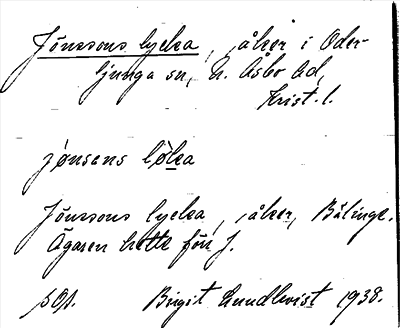 Jönssons lycka, åker i Oder-
ljunga sn, N. Åsbo hd,
Krist. l.
jönsens lö̀ka
Jönssons lycka, åker, Bälinge.
Ägaren hette förr J.
Birgit Lundkvist 1938.